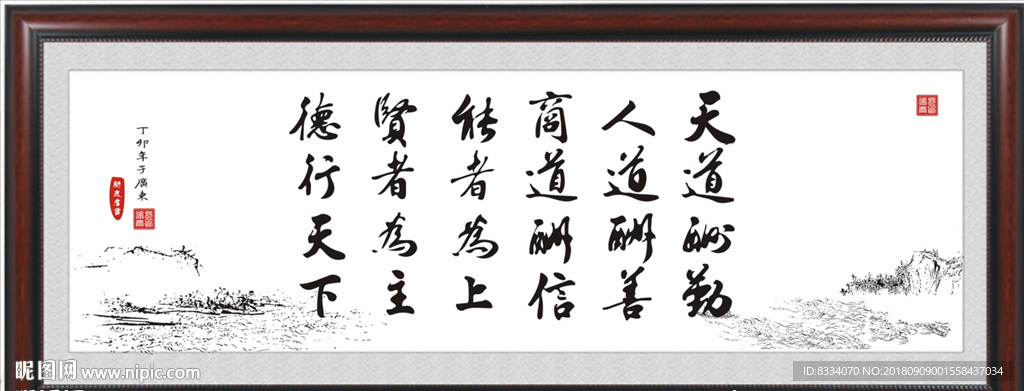 天道酬勤
人道酬善
商道酬信
能者為上
賢者為主
德行天下
丁卯年于廣東
昵图网 www.nipic.com
ID:8334070 NO:20180909001558437034